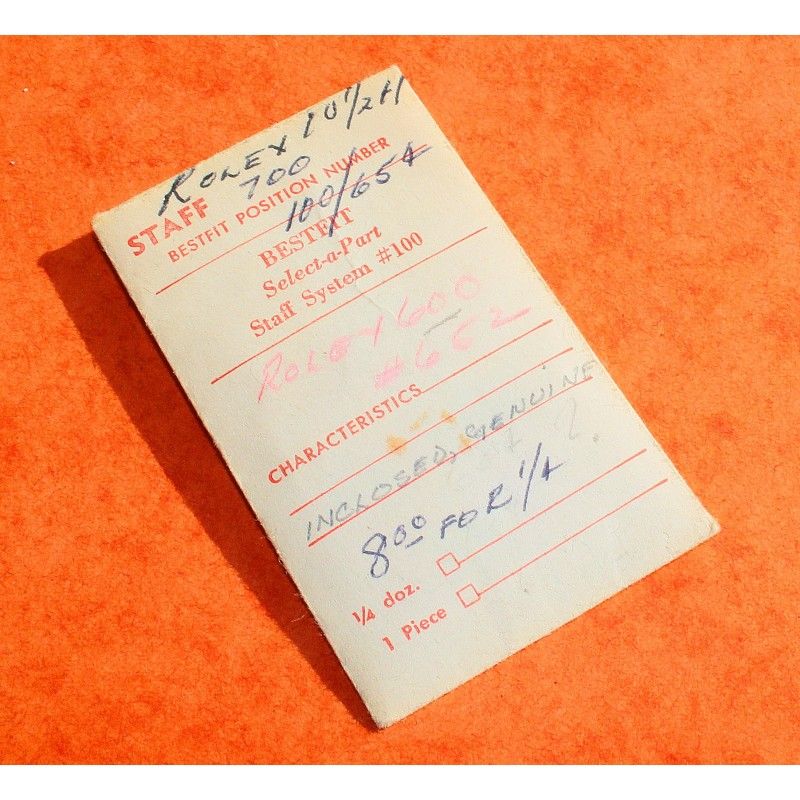 ROLEX 10 1/2 H
700
STAFF
BESTFIT POSITION NUMBER
100/654
BESTFIT
Select-a-Part
Staff System #100
ROLEX 600
#652
CHARACTERISTICS
INCLOSED, GENUINE
8 00 FOR 1/4
1/4 doz.
1 Piece